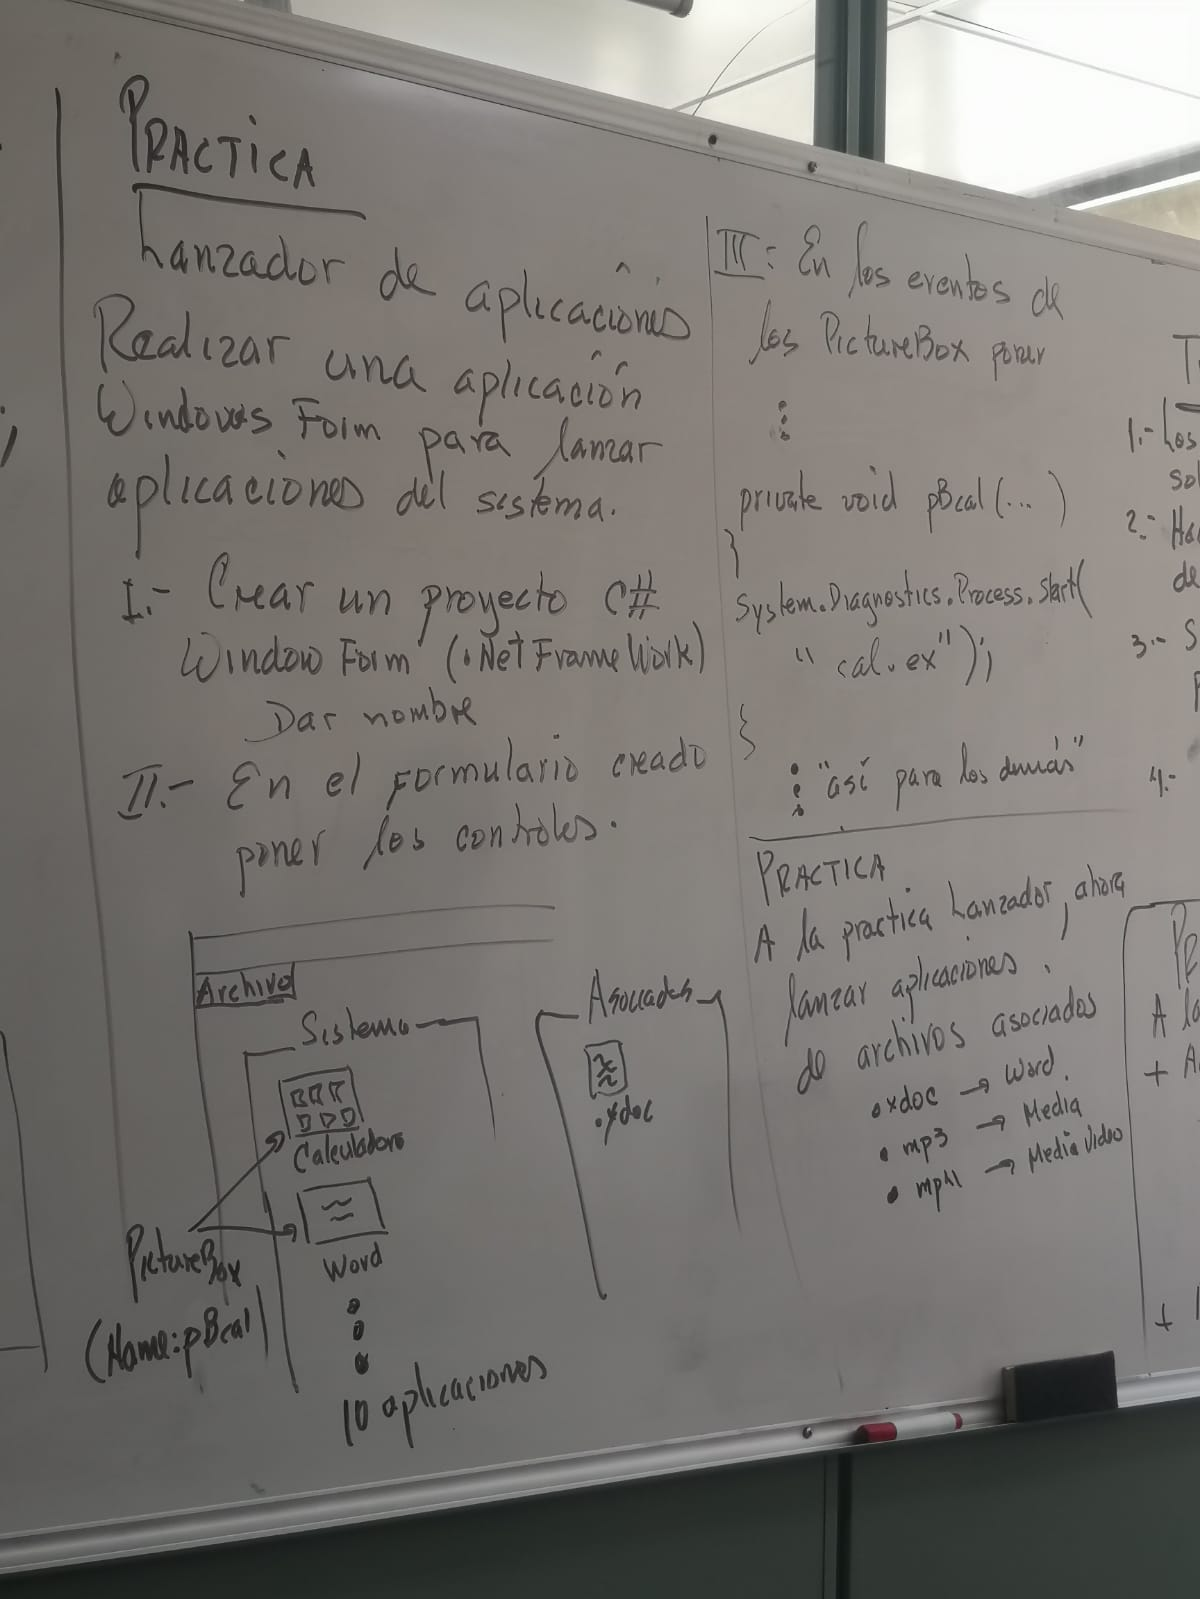 PRACTICA
Lanzador de aplicaciones
Realizar una aplicación
Windows Form para lanzar
aplicaciones del sistema.
I.- Crear un proyecto C#
Window Form (.Net FrameWork)
Dar nombre
II.- En el Formulario creado
poner los controles.
Archivo
Sistema
Calculadora
Word
PictureBox
(Name:pBcal)
10 aplicaciones
Asociados
.xdoc
III: En los eventos de
los PictureBox poner
private void pBcal(...)
}
System.Diagnostics.Process.Start(
"cal.ex");
}
"así para los demás"
PRACTICA
A la practica Lanzador, ahora
lanzar aplicaciones.
de archivos asociados
• xdoc → Word.
• mp3 → Media
• mp4 → Media video
1.- Los
2.-
de
3.- S
4.-
A la
+ A
+